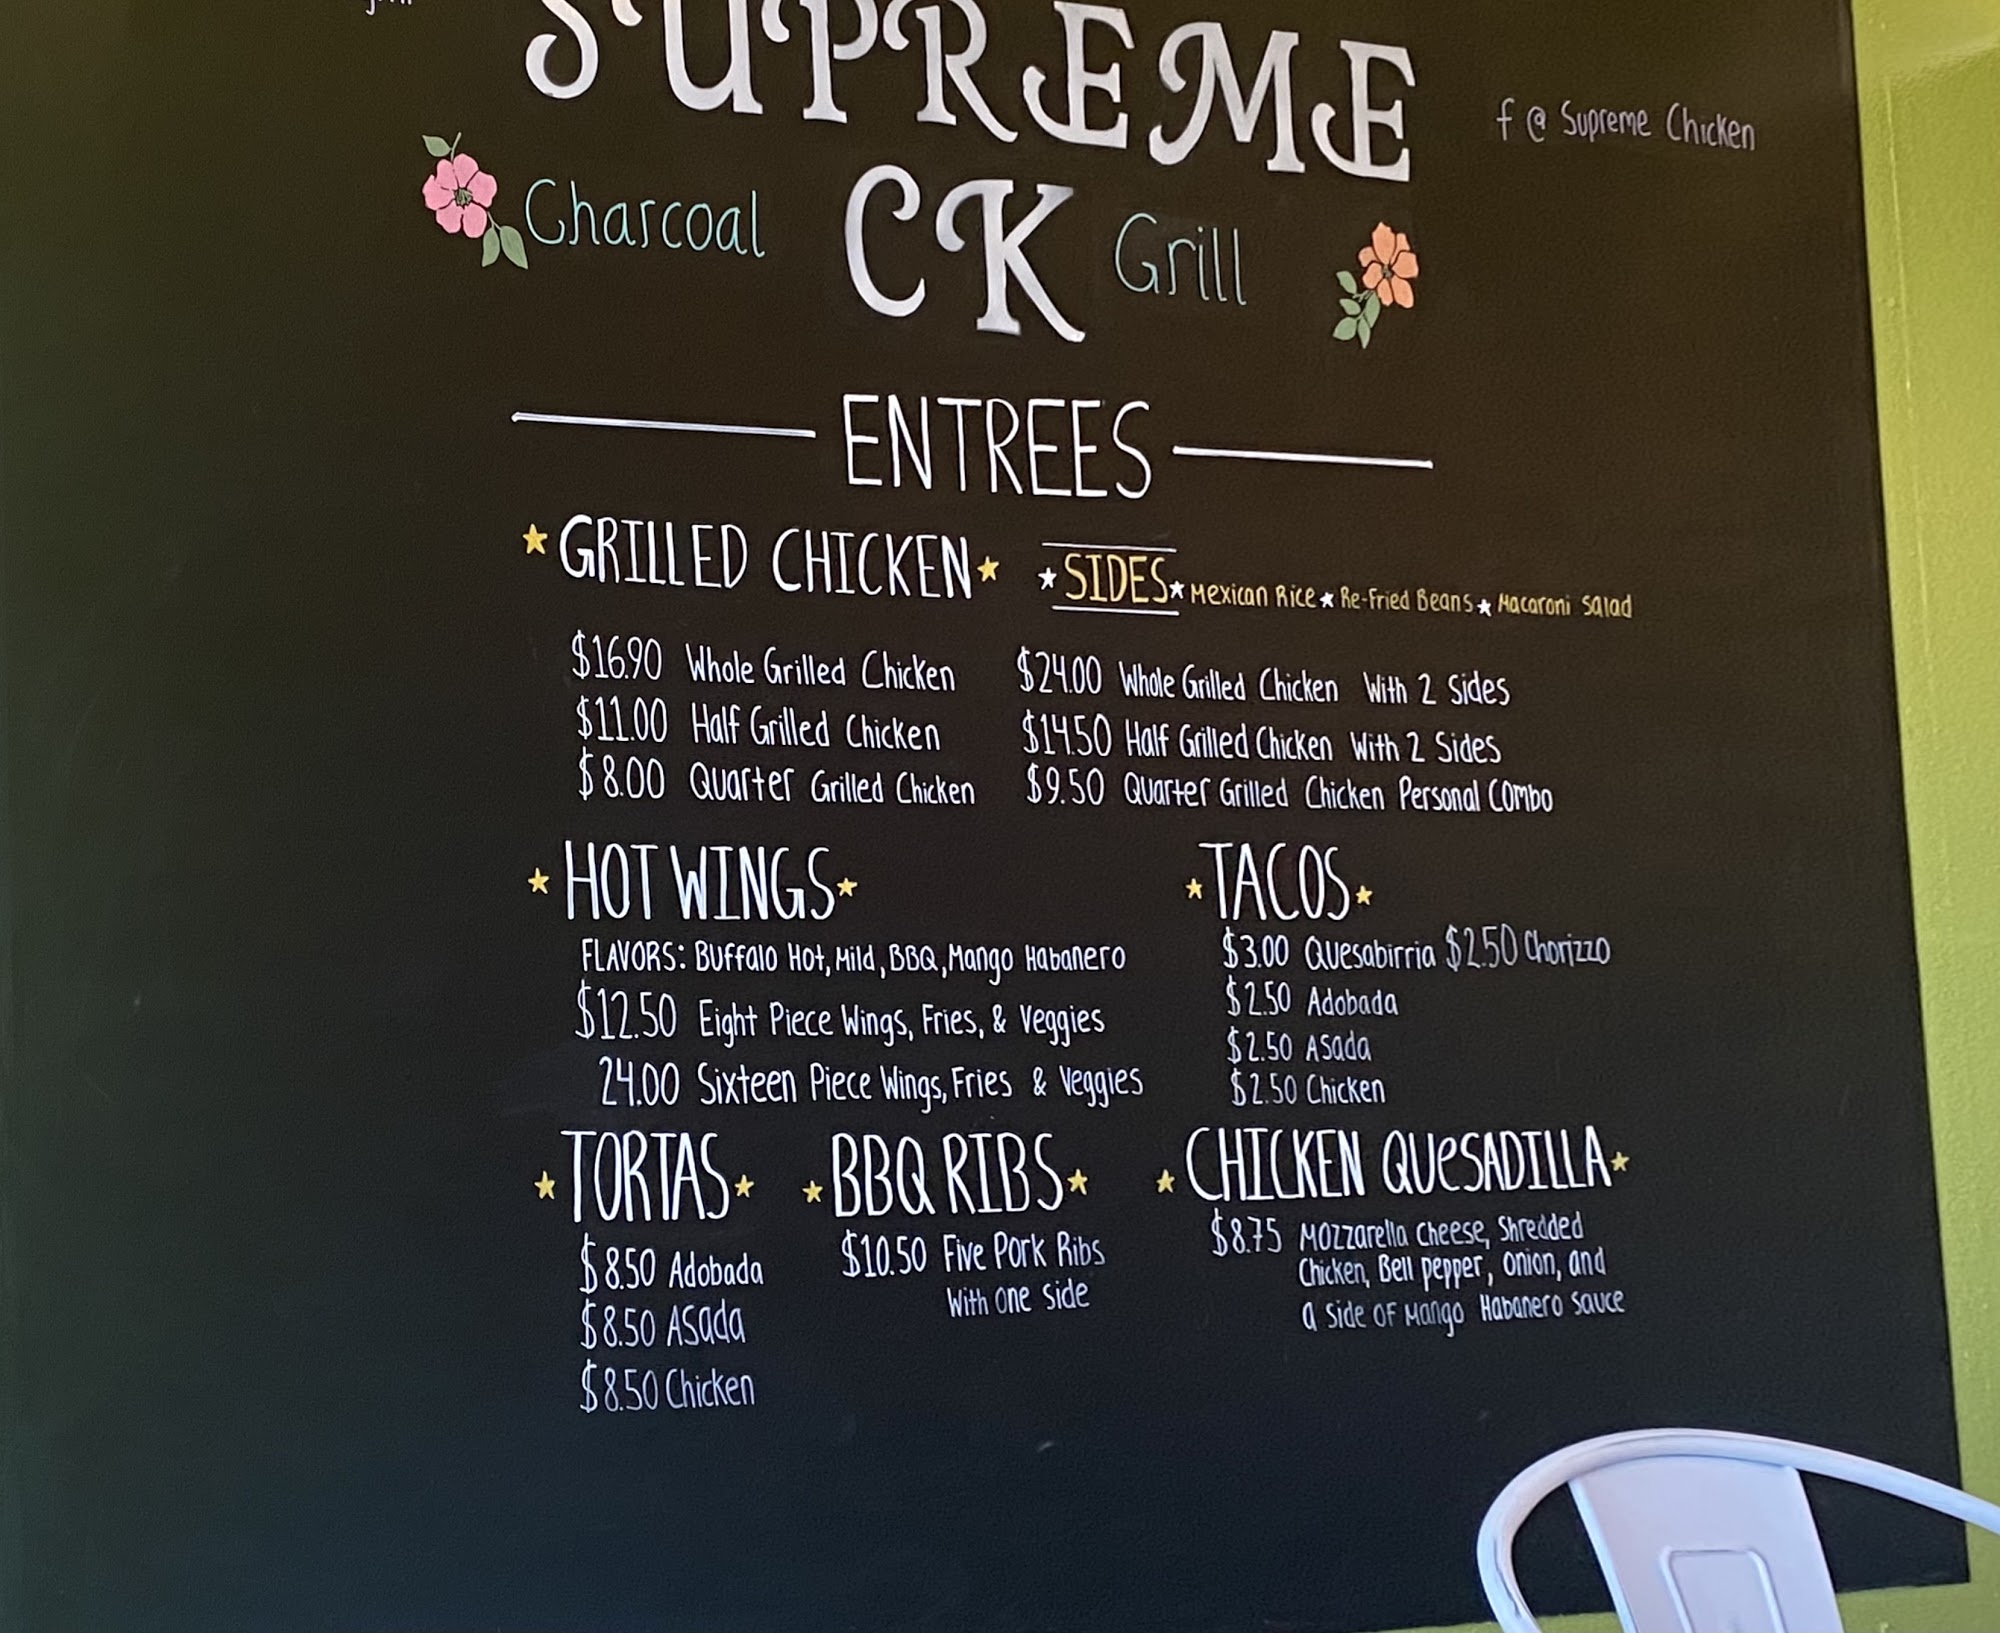 SUPREME
f @ Supreme Chicken
Charcoal CK Grill
ENTREES
GRILLED CHICKEN
SIDES Mexican Rice Re-Fried Beans Macaroni Salad
$16.90 Whole Grilled Chicken
$11.00 Half Grilled Chicken
$8.00 Quarter Grilled Chicken
$24.00 Whole Grilled Chicken With 2 Sides
$14.50 Half Grilled Chicken With 2 Sides
$9.50 Quarter Grilled Chicken Personal Combo
HOT WINGS
FLAVORS: Buffalo Hot, Mild, BBQ, Mango Habanero
$12.50 Eight Piece Wings, Fries, & Veggies
24.00 Sixteen Piece Wings, Fries & Veggies
TACOS
$3.00 Quesabirria $2.50 Chorizzo
$2.50 Adobada
$2.50 Asada
$2.50 Chicken
TORTAS
$8.50 Adobada
$8.50 Asada
$8.50 Chicken
BBQ RIBS
$10.50 Five Pork Ribs
With one side
CHICKEN QUESADILLA
$8.75 Mozzarella Cheese, Shredded
Chicken, Bell pepper, onion, and
a side of Mango Habanero sauce